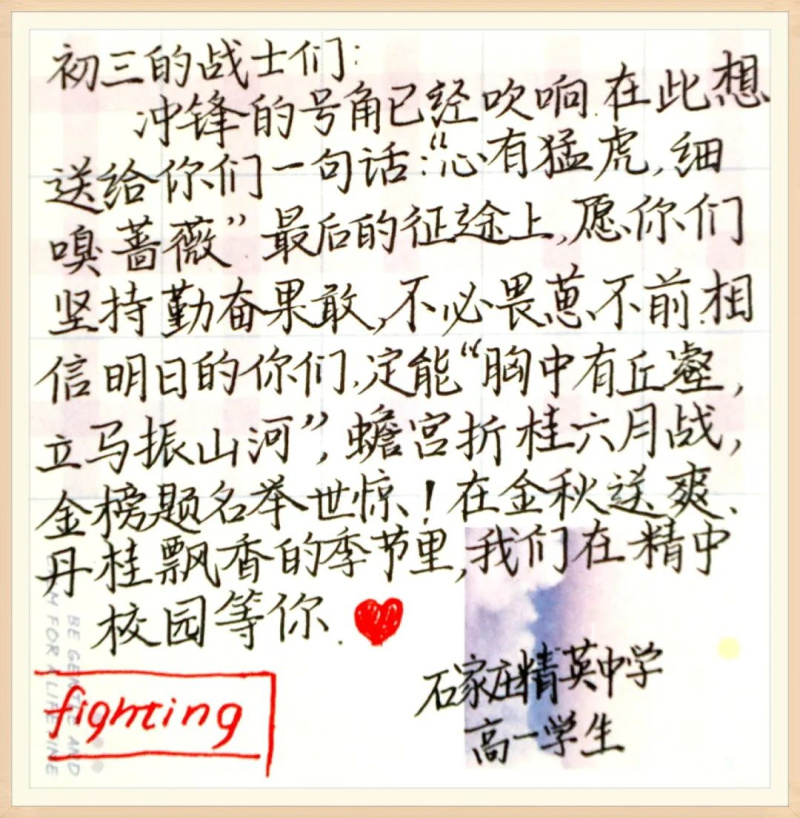 初三的战士们:
冲锋的号角已经吹响.在此想
送给你们一句话:“心有猛虎,细
嗅蔷薇”最后的征途上,愿你们
坚持勤奋果敢,不必畏葸不前.相
信明日的你们,定能“胸中有丘壑,
立马振山河”,蟾宫折桂六月战,
金榜题名举世惊!在金秋送爽、
丹桂飘香的季节里,我们在精中
校园等你.
石家庄精英中学
高一学生
fighting
BE GENTLE AND